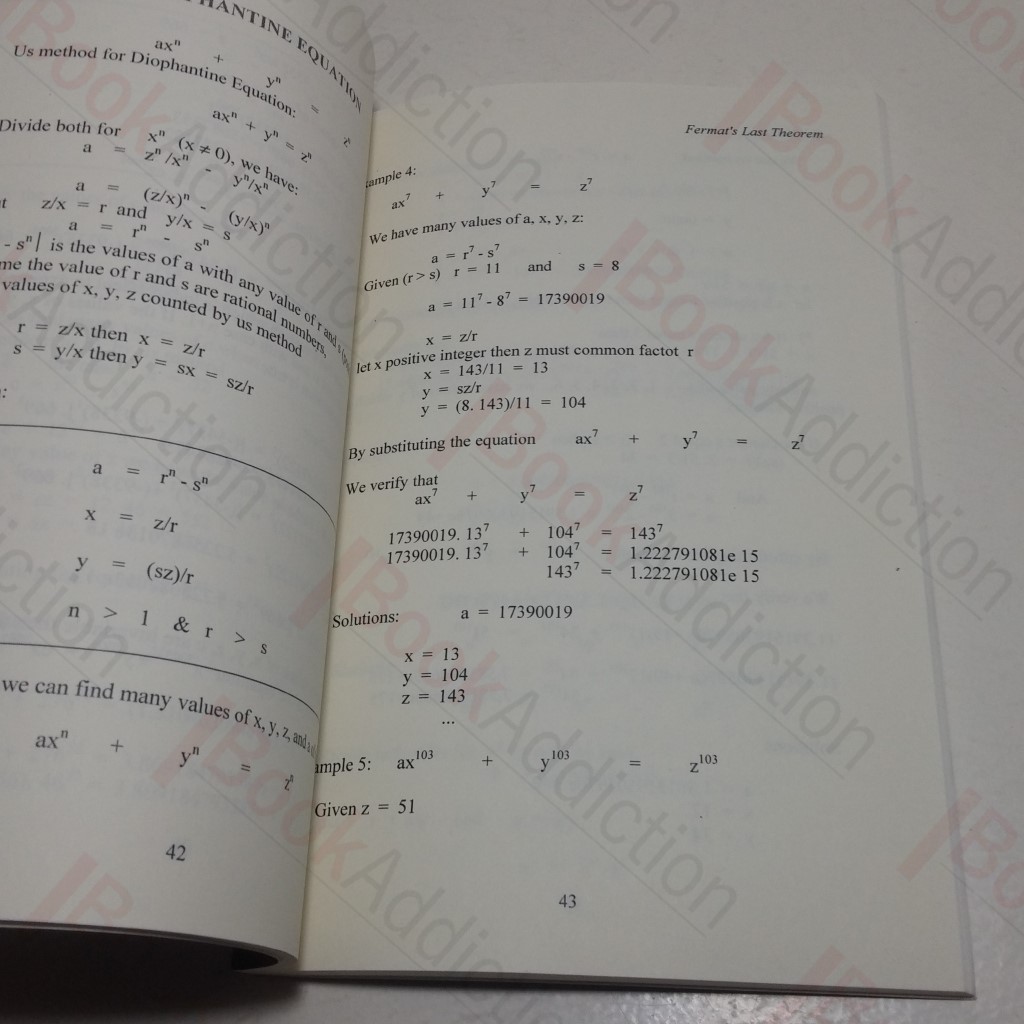 PHANTINE EQUATION
axⁿ + yⁿ = zⁿ
Us method for Diophantine Equation:
axⁿ + yⁿ = zⁿ
Divide both for xⁿ (x ≠ 0), we have:
a = zⁿ/xⁿ - yⁿ/xⁿ
a = (z/x)ⁿ - (y/x)ⁿ
z/x = r and y/x = s
a = rⁿ - sⁿ
- sⁿ| is the values of a with any value of r and s
me the value of r and s are rational numbers,
values of x, y, z counted by us method
r = z/x then x = z/r
s = y/x then y = sx = sz/r
:
a = rⁿ - sⁿ
x = z/r
y = (sz)/r
n > 1 & r > s
we can find many values of x, y, z, and a
axⁿ + yⁿ = zⁿ
42
Fermat's Last Theorem
ample 4:
ax⁷ + y⁷ = z⁷
We have many values of a, x, y, z:
a = r⁷ - s⁷
Given (r > s) r = 11 and s = 8
a = 11⁷ - 8⁷ = 17390019
x = z/r
let x positive integer then z must common factot r
x = 143/11 = 13
y = sz/r
y = (8. 143)/11 = 104
By substituting the equation ax⁷ + y⁷ = z⁷
We verify that
ax⁷ + y⁷ = z⁷
17390019. 13⁷ + 104⁷ = 143⁷
17390019. 13⁷ + 104⁷ = 1.222791081e 15
143⁷ = 1.222791081e 15
Solutions: a = 17390019
x = 13
y = 104
z = 143
...
ample 5: ax¹⁰³ + y¹⁰³ = z¹⁰³
Given z = 51
43
BookAddiction